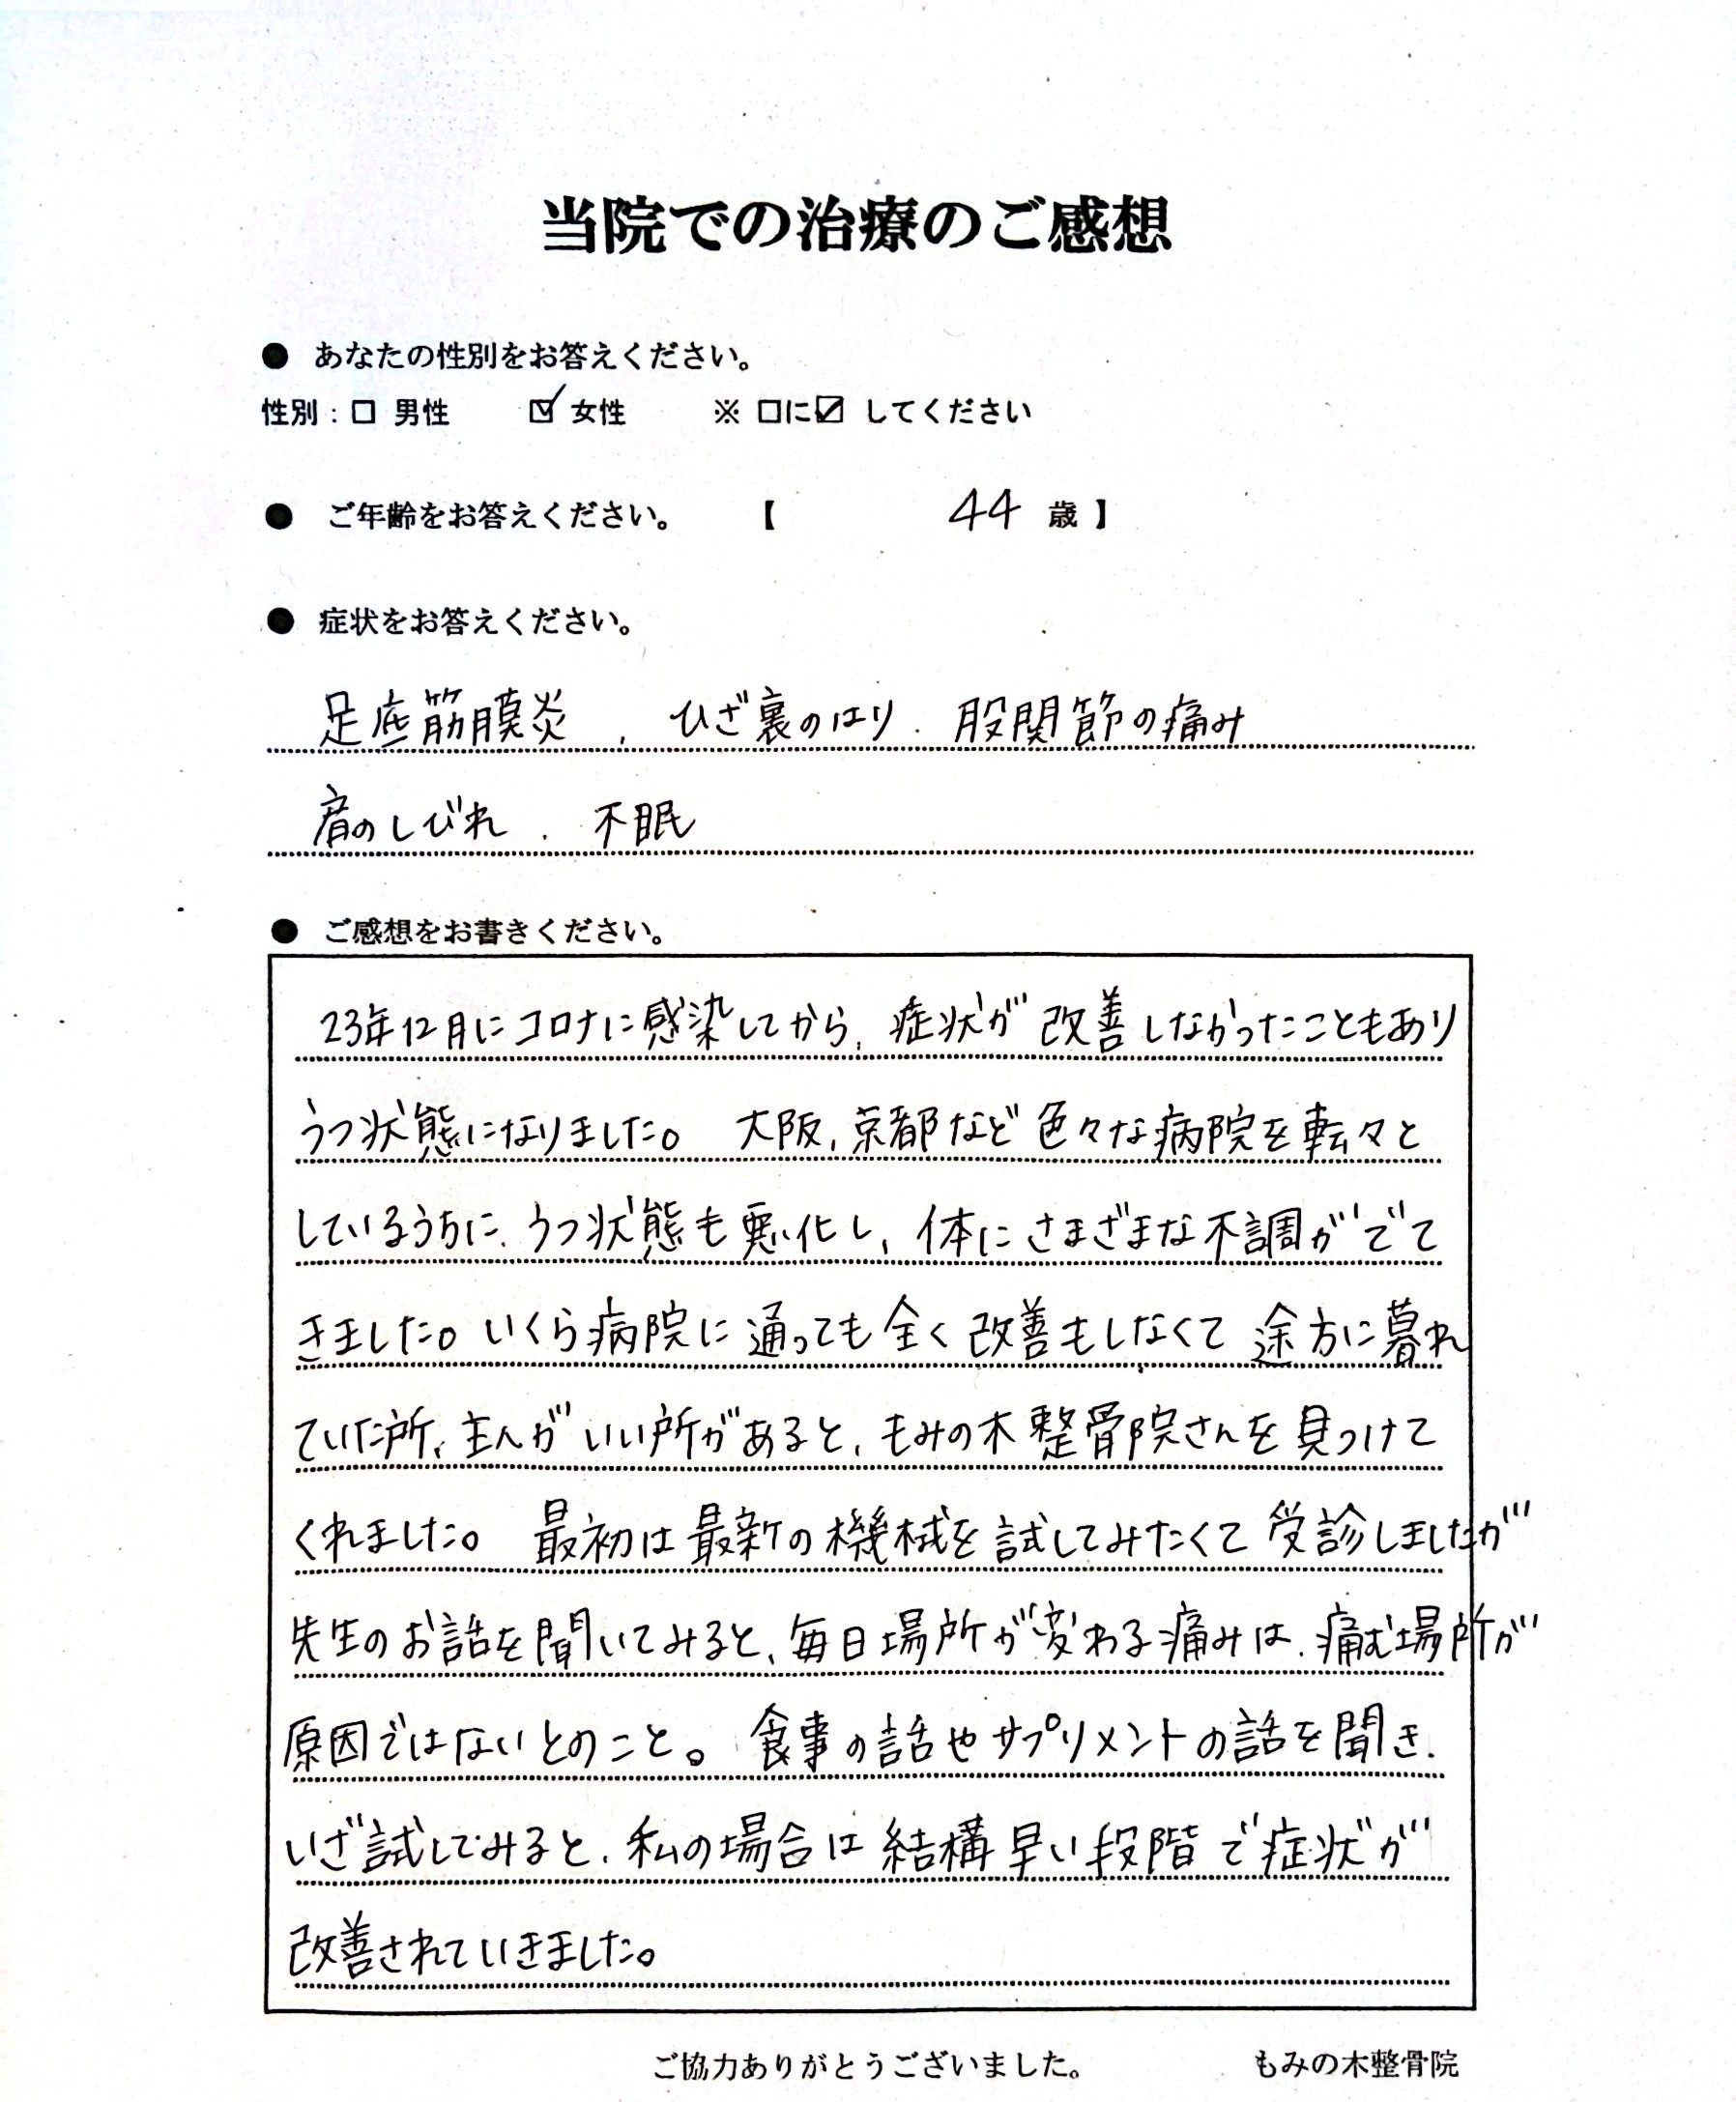 当院での治療のご感想
● あなたの性別をお答えください。
性別:□ 男性 ☑ 女性 ※ □に☑ してください
● ご年齢をお答えください。 【 44 歳】
● 症状をお答えください。
足底筋膜炎、ひざ裏のはり、股関節の痛み
肩のしびれ、不眠
● ご感想をお書きください。
23年12月にコロナに感染してから、症状が改善しなかったこともあり
うつ状態になりました。大阪、京都など色々な病院を転々と
しているうちに、うつ状態も悪化し、体にさまざまな不調がでて
きました。いくら病院に通っても全く改善もしなくて途方に暮れ
ていた所、主人がいい所があると、もみの木整骨院さんを見つけて
くれました。最初は最新の機械を試してみたくて受診しましたが
先生のお話を聞いてみると、毎日場所が変わる痛みは、痛む場所が
原因ではないとのこと。食事の話やサプリメントの話を聞き、
いざ試してみると、私の場合は結構早い段階で症状が
改善されていきました。
ご協力ありがとうございました。 もみの木整骨院